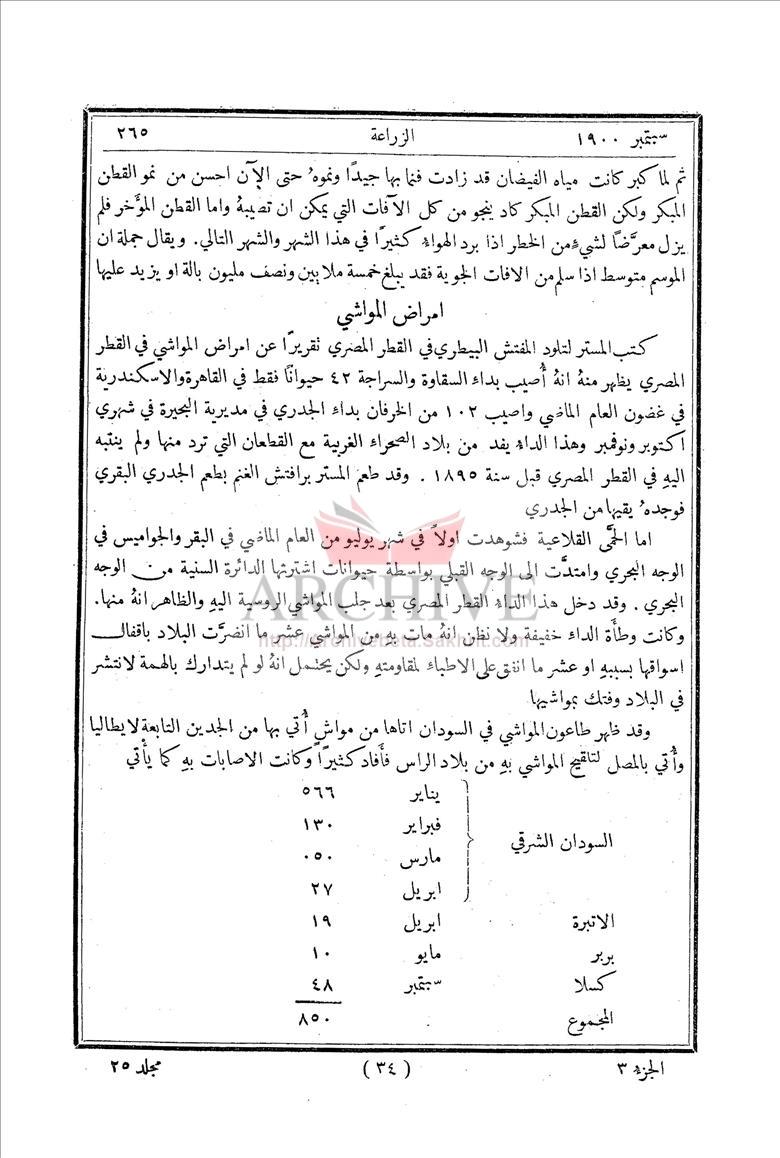 سبتمبر ١٩٠٠ الزراعة ٢٦٥
ثم لما كبر كانت مياه الفيضان قد زادت فنما بها جيدًا ونموهُ حتى الآن احسن من نمو القطن
المبكر ولكن القطن المبكر كاد ينجو من كل الآفات التي يمكن ان تصيبهُ واما القطن المؤخر فلم
يزل معرَّضًا لشيءٍ من الخطر اذا برد الهواءُ كثيرًا في هذا الشهر والشهر التالي. ويقال جملة ان
الموسم متوسط اذا سلم من الافات الجوية فقد يبلغ خمسة ملايين ونصف مليون بالة او يزيد عليها
امراض المواشي
كتب المستر لتلود المفتش البيطري في القطر المصري تقريرًا عن امراض المواشي في القطر
المصري يظهر منهُ انهُ أُصيب بداء السقاوة والسراجة ٤٢ حيوانًا فقط في القاهرة والاسكندرية
في غضون العام الماضي واصيب ١٠٢ من الخرفان بداء الجدري في مديرية البحيرة في شهري
اكتوبر ونوفمبر وهذا الداءُ يفد من بلاد الصحراء الغربية مع القطعان التي ترد منها ولم ينتبه
اليهِ في القطر المصري قبل سنة ١٨٩٥ . وقد طعم المستر برافتش الغنم بطعم الجدري البقري
فوجدهُ يقيها من الجدري
اما الحمَّى القلاعية فشوهدت اولاً في شهر يوليو من العام الماضي في البقر والجواميس في
الوجه البحري وامتدَّت الى الوجه القبلي بواسطة حيوانات اشترتها الدائرة السنية من الوجه
البحري . وقد دخل هذا الداءُ القطر المصري بعد جلب المواشي الروسية اليهِ والظاهر انهُ منها.
وكانت وطأَة الداء خفيفة ولا نظن انهُ مات بهِ من المواشي عشر ما انضرَّت البلاد باقفال
اسواقها بسببهِ او عشر ما انفق على الاطباء لمقاومتهِ ولكن يحتمل انهُ لو لم يتدارك بالهمة لانتشر
في البلاد وفتك بمواشيها
وقد ظهر طاعون المواشي في السودان اتاها من مواشٍ أُتي بها من الجدين التابعة لايطاليا
وأُتي بالمصل لتلقيح المواشي بهِ من بلاد الراس فأَفاد كثيرًا وكانت الاصابات بهِ كما يأتي
يناير ٥٦٦
فبراير ١٣٠
السودان الشرقي
مارس ٠٥٠
ابريل ٢٧
الاتبرة ابريل ١٩
بربر مايو ١٠
كسلا سبتمبر ٤٨
المجموع ٨٥٠
الجزء ٣ (٣٤) مجلد ٢٥
ARCHIVE
http://Archivebeta.Sakhrit.com